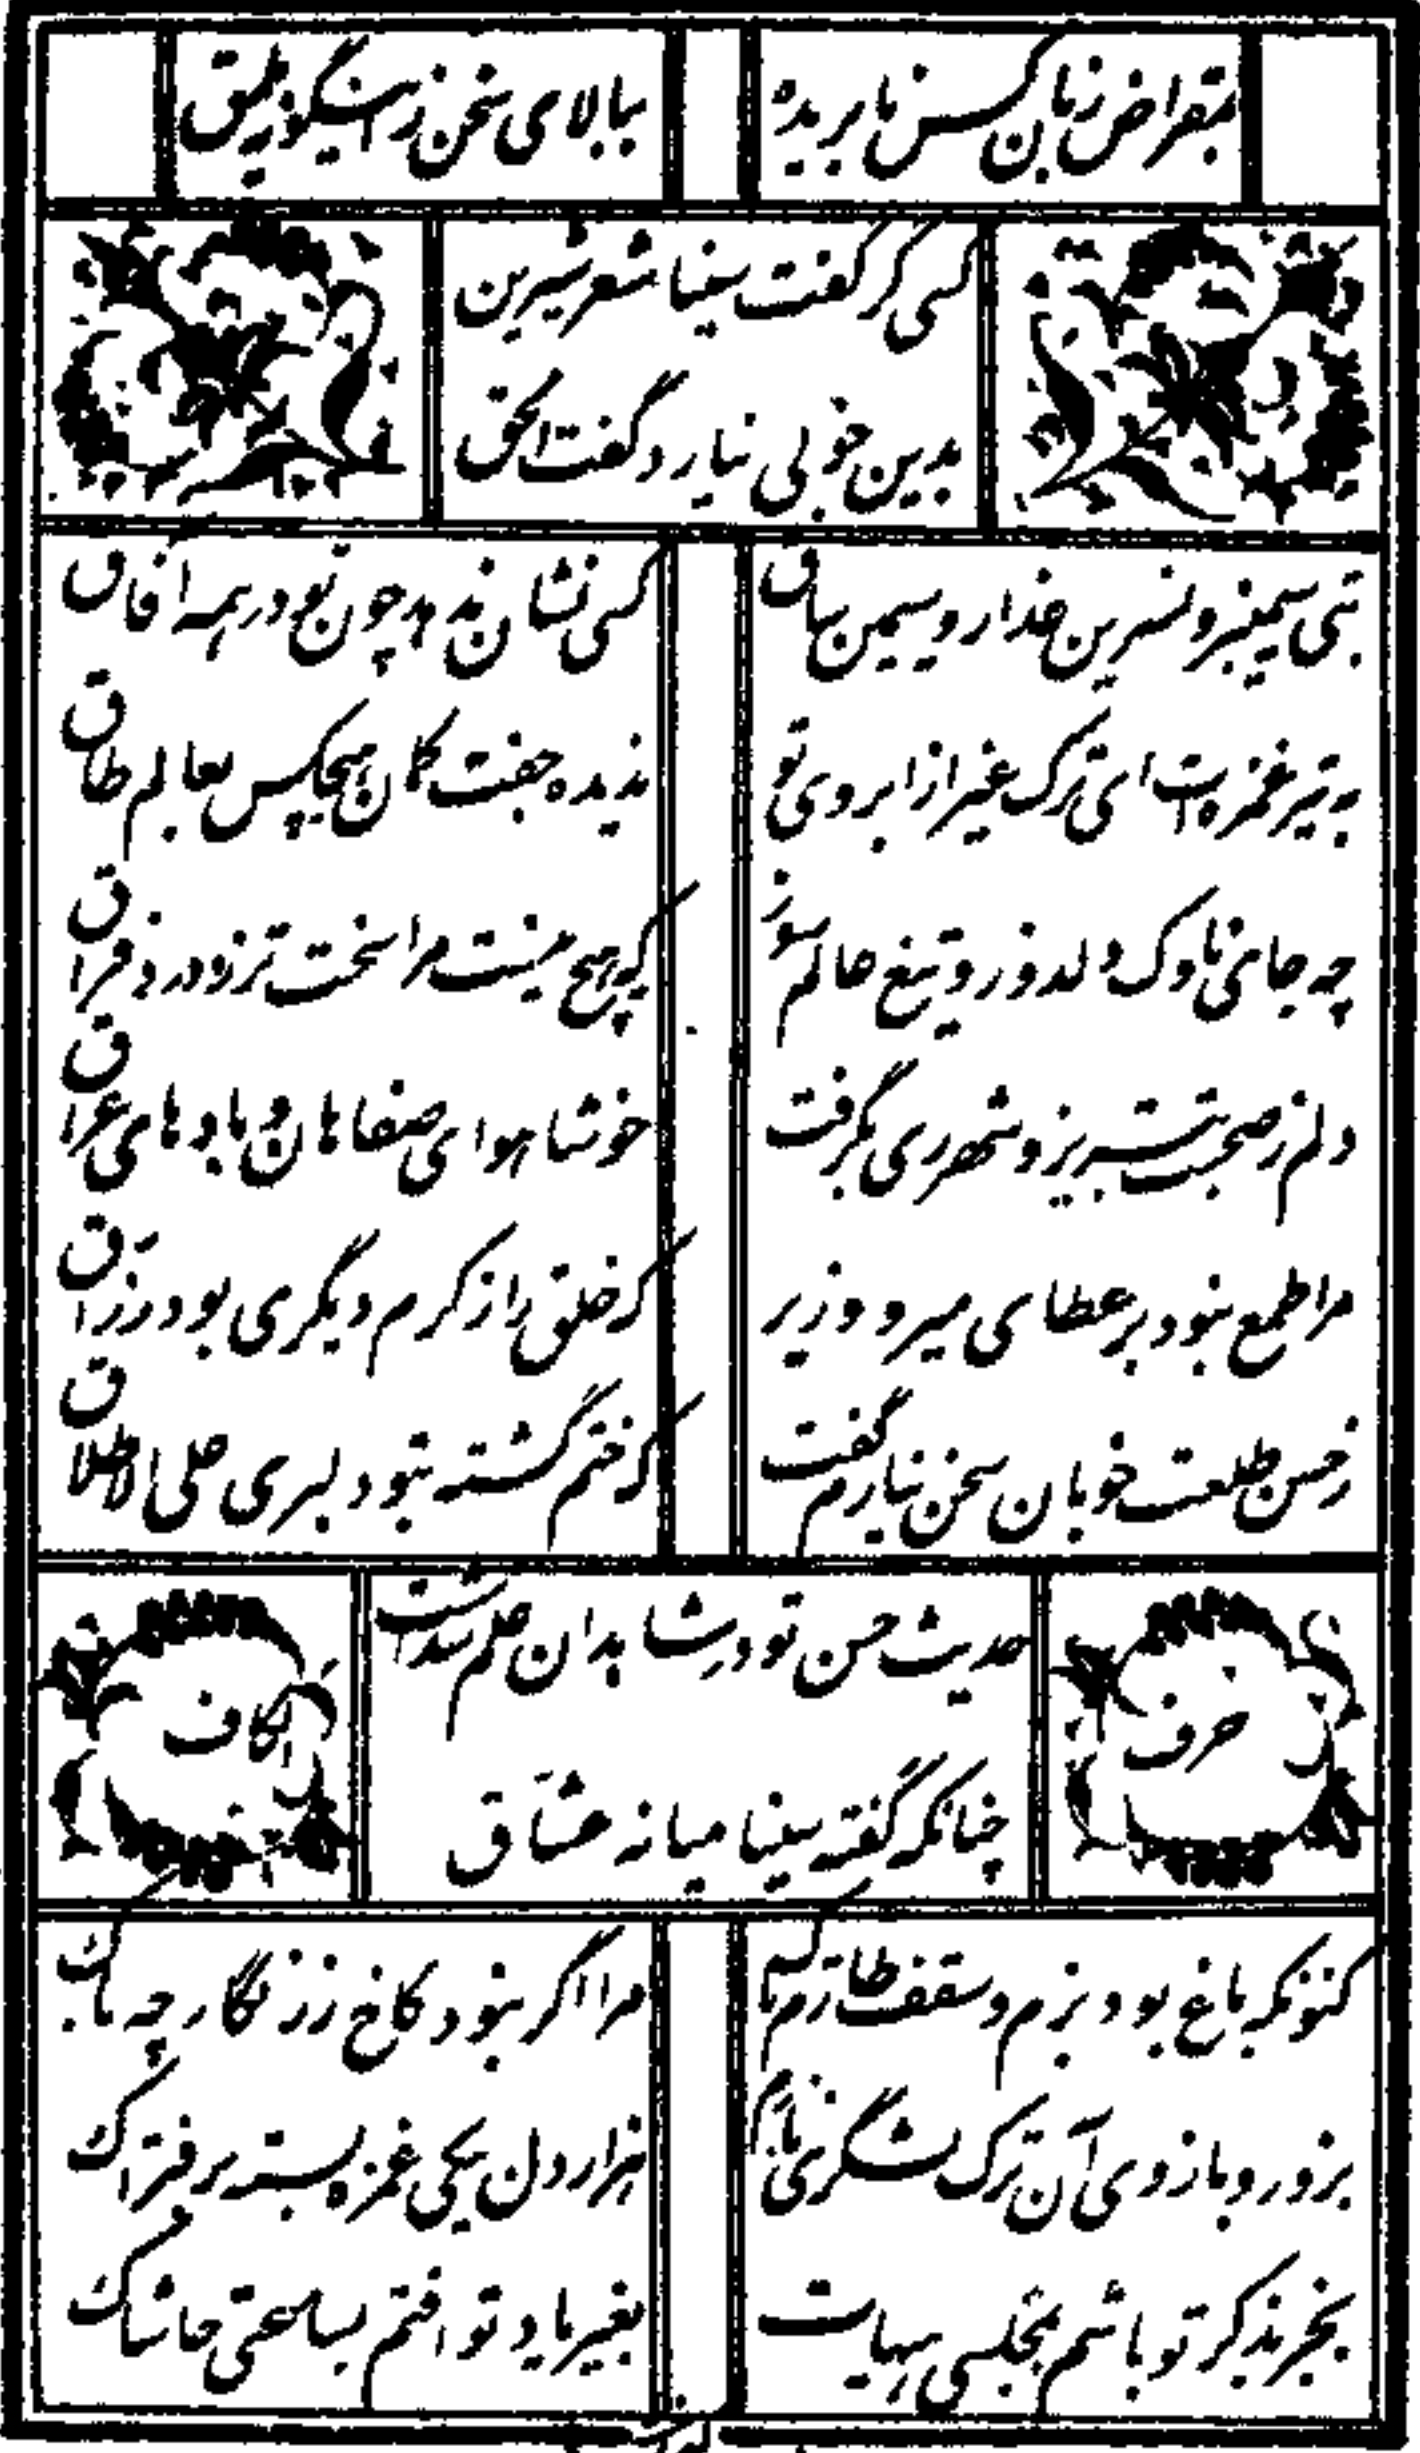 بمقراض زبان کس نابریده
ببالای سخن زینگونه یلمق
کسی گر گفت یغما شعر شیرین
بدین خوبی نیارد گفت الحق
بتی سمنبر و نسرین عذار و سیمین ساق
کسی نشان ندهد چون تو در همه آفاق
به تیر غمزه‌ات ای ترک غیر از ابروی تو
ندیده جفت کمان هیچکس بعالم طاق
چه جای ناوک دلدوز و تیغ عالم سوز
که هیچ نیست مرا سخت‌تر ز درد فراق
دلم ز صحبت تبریز و شهر ری بگرفت
خوشا هوای صفاهان و بادهای عراق
مرا طمع نبود بر عطای میر و وزیر
که خلق را ز کرم دیگری بود رزاق
ز حسن طلعت خوبان سخن نیارم گفت
که ختم گشته بتو دلبری علی الاطلاق
حرف
حدیث حسن تو در شاهدان علم شدست
الکاف
چنانکه گفته یغما میانه عشاق
کنونکه باغ بود بزم و سقف طارم تاک
مرا اگر نبود کاخ زرنگار چه باک
بزور و بازوی آن ترک لشگری نازم
هزار دل بیکی غمزه بسته بر فتراک
بجز بذکر تو باشم بمجلسی هیهات
بغیر یاد تو افتم بساعتی حاشاک